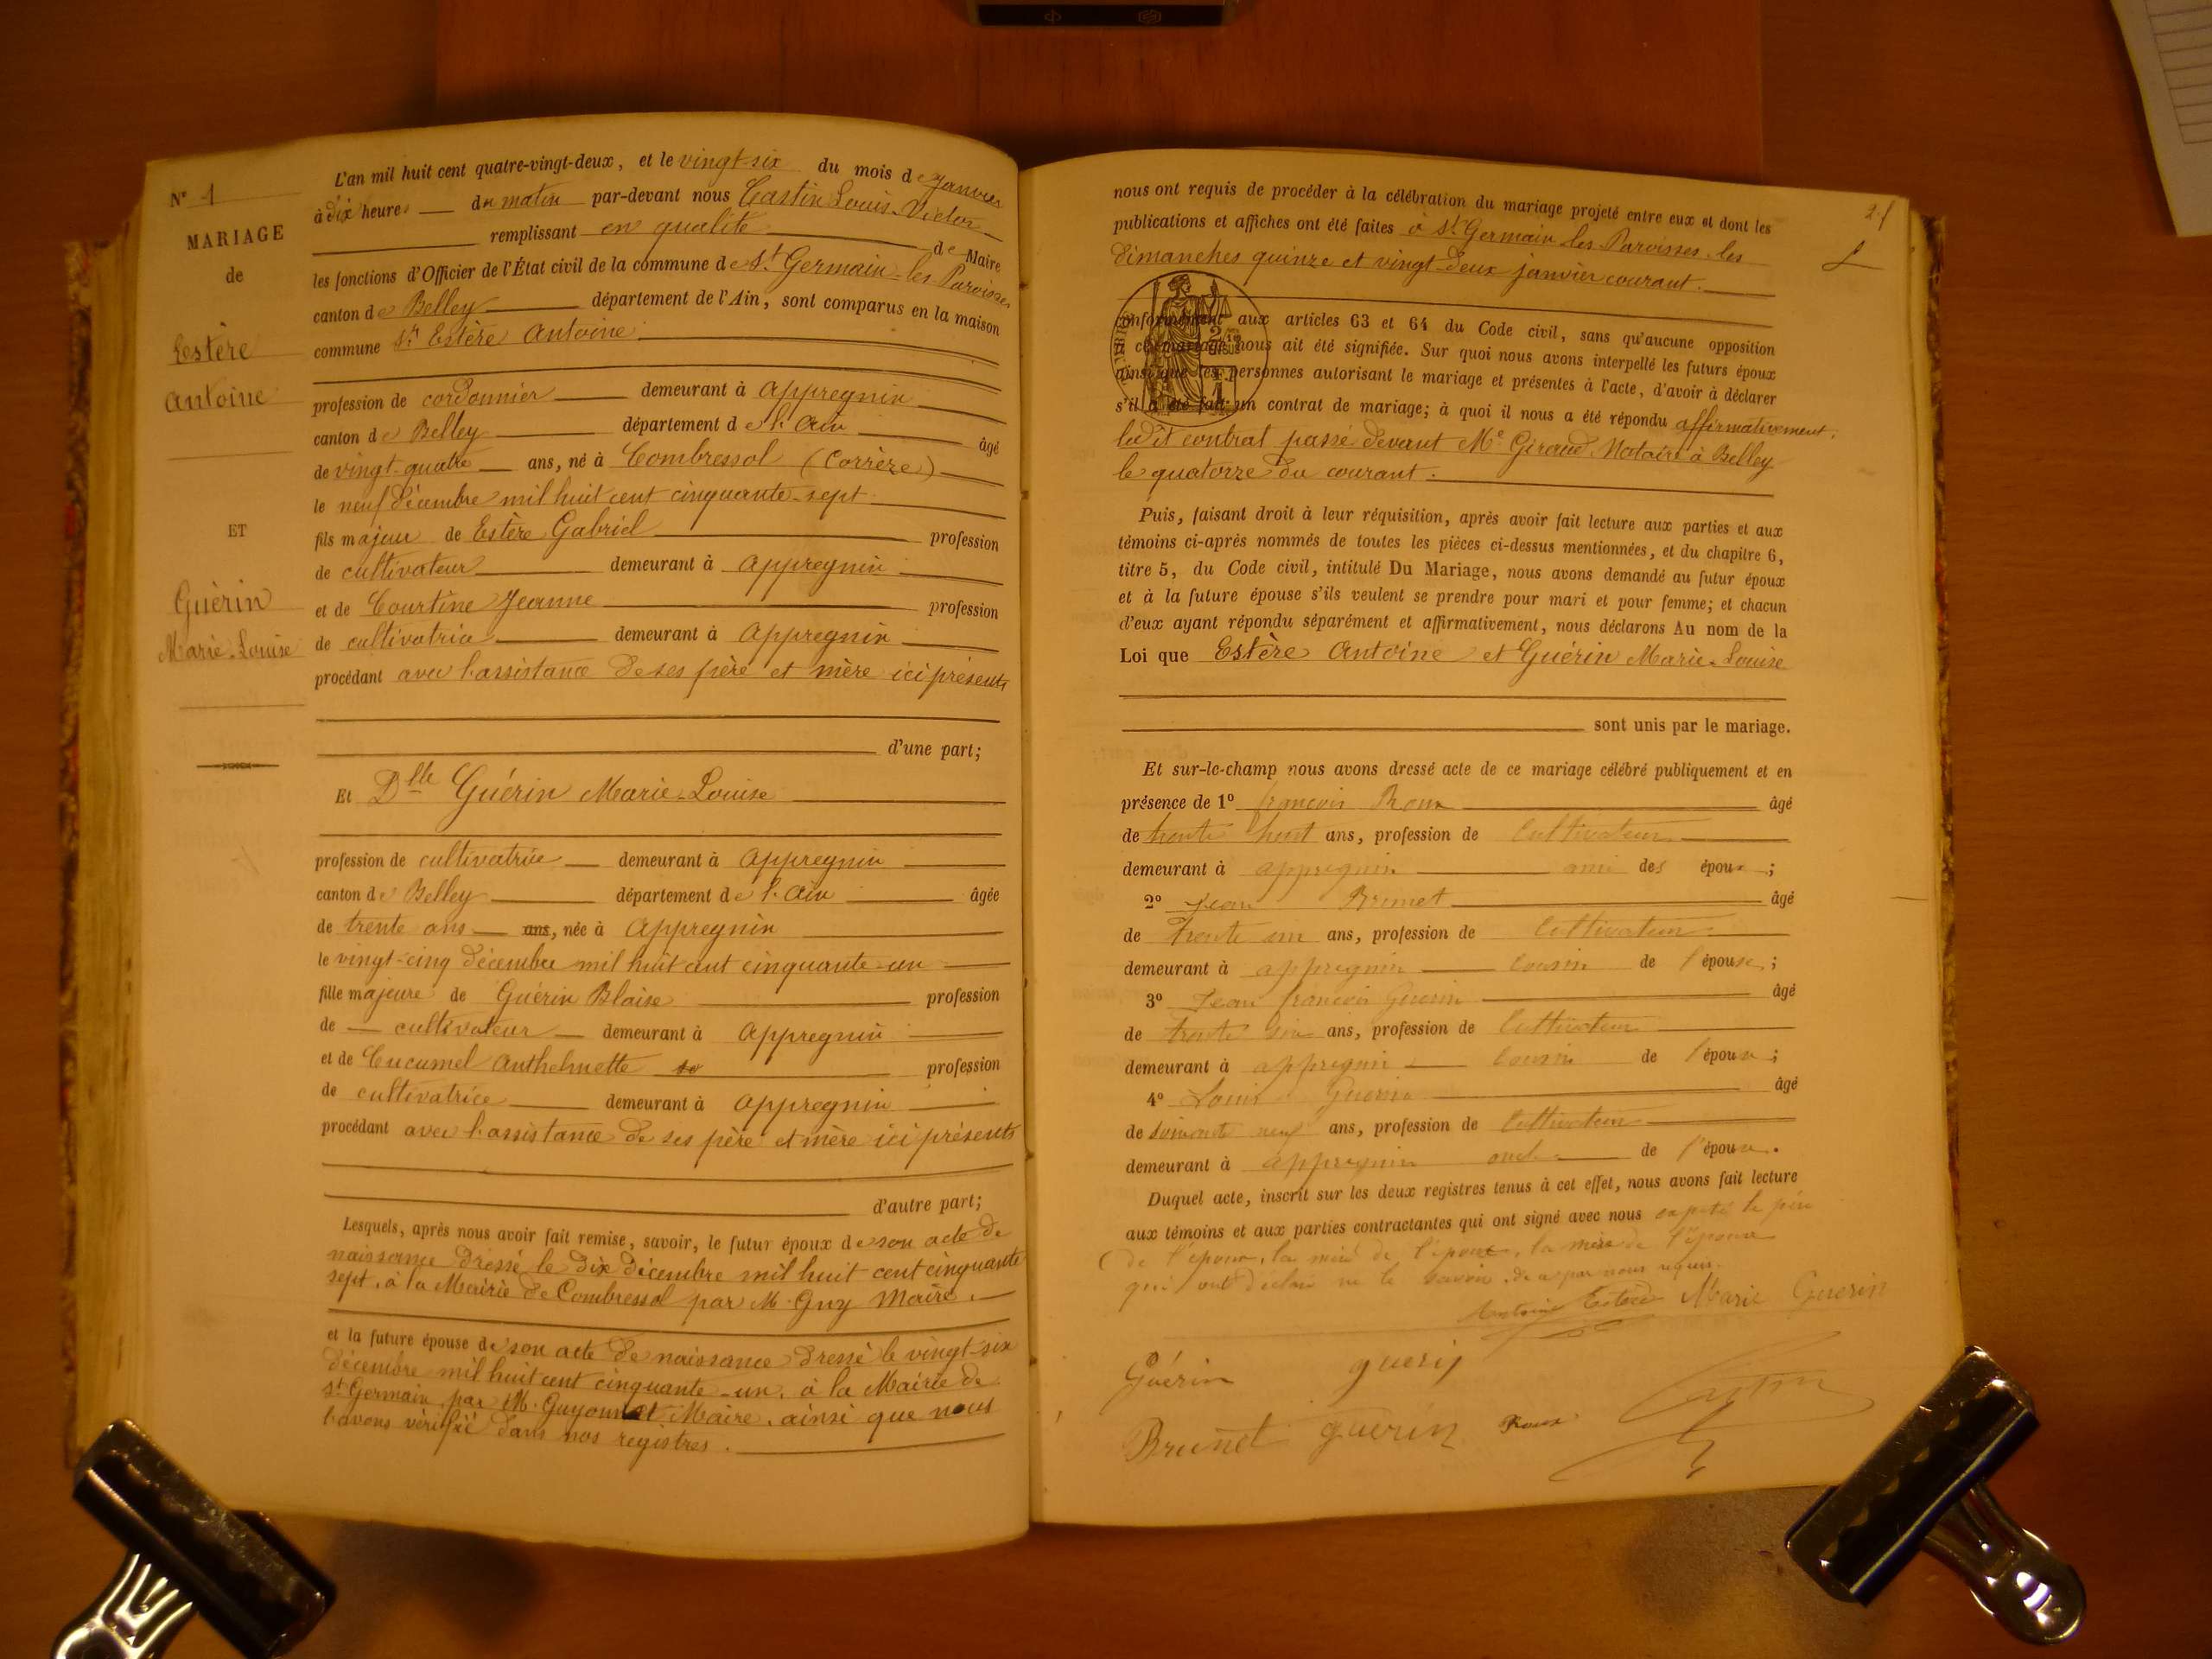 N° 1
MARIAGE
de
Estère
Antoine
ET
Guérin
Marie-Louise
L'an mil huit cent quatre-vingt-deux, et le vingt-six du mois de janvier
à dix heures du matin par-devant nous Castin Louis-Victor
remplissant en qualité de Maire
les fonctions d'Officier de l'État civil de la commune de St Germain-les Paroisses
canton de Belley département de l'Ain, sont comparus en la maison
commune Sr Estère Antoine
profession de cordonnier demeurant à Appregnin
canton de Belley département de l'Ain âgé
de vingt-quatre ans, né à Combressol (Corrèze)
le neuf décembre mil huit cent cinquante-sept
fils majeur de Estère Gabriel profession
de cultivateur demeurant à Appregnin
et de Courtine Jeanne profession
de cultivatrice demeurant à Appregnin
procédant avec l'assistance de ses père et mère ici présents
d'une part;
Et Dlle Guérin Marie-Louise
profession de cultivatrice demeurant à Appregnin
canton de Belley département de l'Ain âgée
de trente ans ans, née à Appregnin
le vingt-cinq décembre mil huit cent cinquante-un
fille majeure de Guérin Blaise profession
de cultivateur demeurant à Appregnin
et de Cucumel Anthelmette profession
de cultivatrice demeurant à Appregnin
procédant avec l'assistance de ses père et mère ici présents
d'autre part;
Lesquels, après nous avoir fait remise, savoir, le futur époux de son acte de
naissance dressé le dix décembre mil huit cent cinquante
sept, à la Mairie de Combressol par M. Guy Maire.
et la future épouse de son acte de naissance dressé le vingt-six
décembre mil huit cent cinquante-un, à la Mairie de
St Germain par M. Guyonnet Maire, ainsi que nous
l'avons vérifié dans nos registres.
21
nous ont requis de procéder à la célébration du mariage projeté entre eux et dont les
publications et affiches ont été faites à St Germain les Paroisses, les
dimanches quinze et vingt-deux janvier courant.
conformément aux articles 63 et 64 du Code civil, sans qu'aucune opposition
à ce mariage nous ait été signifiée. Sur quoi nous avons interpellé les futurs époux
ainsi que les personnes autorisant le mariage et présentes à l'acte, d'avoir à déclarer
s'il a été fait un contrat de mariage; à quoi il nous a été répondu affirmativement,
ledit contrat passé devant Me Giraud, Notaire à Belley
le quatorze du courant.
Puis, faisant droit à leur réquisition, après avoir fait lecture aux parties et aux
témoins ci-après nommés de toutes les pièces ci-dessus mentionnées, et du chapitre 6,
titre 5, du Code civil, intitulé Du Mariage, nous avons demandé au futur époux
et à la future épouse s'ils veulent se prendre pour mari et pour femme; et chacun
d'eux ayant répondu séparément et affirmativement, nous déclarons Au nom de la
Loi que Estère Antoine et Guérin Marie-Louise
sont unis par le mariage.
Et sur-le-champ nous avons dressé acte de ce mariage célébré publiquement et en
présence de 1° françois Roux âgé
de trente huit ans, profession de Cultivateur
demeurant à appregnin ami des époux;
2° Jean Brunet âgé
de trente ans, profession de Cultivateur
demeurant à appregnin cousin de l'épouse;
3° Jean françois Guerin âgé
de trente six ans, profession de Cultivateur
demeurant à appregnin cousin de l'épouse;
4° Louis Guerin âgé
de soixante neuf ans, profession de Cultivateur
demeurant à appregnin oncle de l'épouse.
Duquel acte, inscrit sur les deux registres tenus à cet effet, nous avons fait lecture
aux témoins et aux parties contractantes qui ont signé avec nous excepté le père
de l'époux, la mère de l'époux, la mère de l'épouse
qui ont déclaré ne le savoir, de ce par nous requis.
Antoine Estère Marie Guerin
Guérin guerin
Brunet guerin Roux Castin